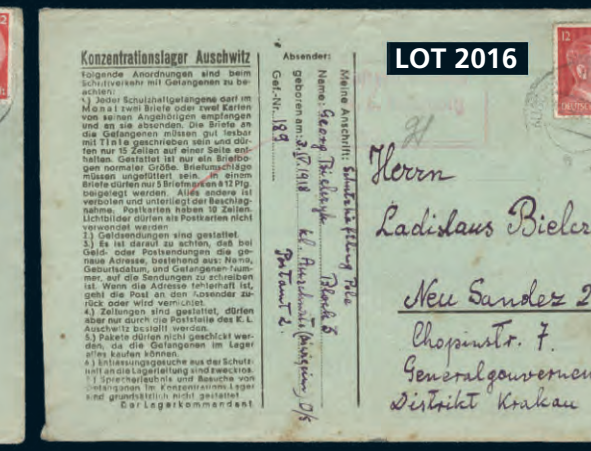 LOT 2016
Konzentrationslager Auschwitz
Folgende Anordnungen sind beim
Schriftverkehr mit Gefangenen zu be-
achten:
1.) Jeder Schutzhaftgefangene darf im
Monat zwei Briefe oder zwei Karten
von seinen Angehörigen empfangen
und an sie absenden. Die Briefe an
die Gefangenen müssen gut lesbar
mit Tinte geschrieben sein und dür-
fen nur 15 Zeilen auf einer Seite ent-
halten. Gestattet ist nur ein Briefbo-
gen normaler Größe. Briefumschläge
müssen ungefüttert sein. In einem
Briefe dürfen nur 5 Briefmarken à 12 Pfg.
beigelegt werden. Alles andere ist
verboten und unterliegt der Beschlag-
nahme. Postkarten haben 10 Zeilen.
Lichtbilder dürfen als Postkarten nicht
verwendet werden
2.) Geldsendungen sind gestattet.
3.) Es ist darauf zu achten, daß bei
Geld- oder Postsendungen die ge-
naue Adresse, bestehend aus: Name,
Geburtsdatum, und Gefangenen-Num-
mer, auf die Sendungen zu schreiben
ist. Wenn die Adresse fehlerhaft ist,
geht die Post an den Absender zu-
rück oder wird vernichtet.
4.) Zeitungen sind gestattet, dürfen
aber nur durch die Poststelle des K. L.
Auschwitz bestellt werden.
5.) Pakete dürfen nicht geschickt wer-
den, da die Gefangenen im Lager
alles kaufen können.
6.) Entlassungsgesuche aus der Schutz-
haft an die Lagerleitung sind zwecklos.
7.) Sprecherlaubnis und Besuche von
Gefangenen im Konzentrations-Lager
sind grundsätzlich nicht gestattet.
Der Lagerkommandant
Absender:
Meine Anschrift: Schutzhäftling Pole
Name: Georg Bielczyk Block 3
geboren am: 3.IV.1918 kl. Auschwitz O/S
Gef.-Nr. 189 Postamt 2
Herrn
Ladislaus Bielcz
Neu Sandez 2
Chopinstr. 7.
Generalgouvernem
Distrikt Krakau
12